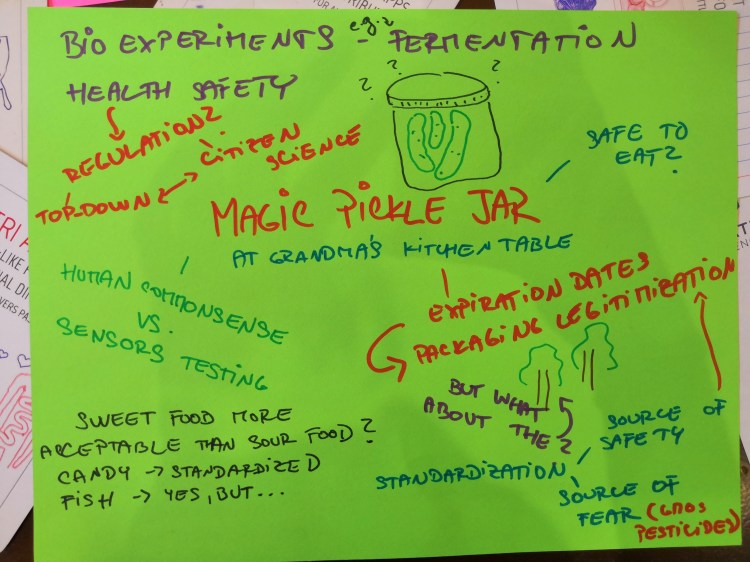 BIO EXPERIMENTS e.g. - FERMENTATION
HEALTH SAFETY
? ? ? ?
REGULATION?
CITIZEN
SCIENCE
TOP-DOWN?
SAFE TO
EAT?
MAGIC PICKLE JAR
AT GRANDMA'S KITCHEN TABLE
HUMAN COMMONSENSE
VS.
SENSORS TESTING
EXPIRATION DATES
PACKAGING LEGITIMIZATION
BUT WHAT
ABOUT THE?
SWEET FOOD MORE
ACCEPTABLE THAN SOUR FOOD?
CANDY → STANDARDIZED
FISH → YES, BUT...
STANDARDIZATION
SOURCE OF
SAFETY
SOURCE OF
FEAR (GMOS
PESTICIDES)